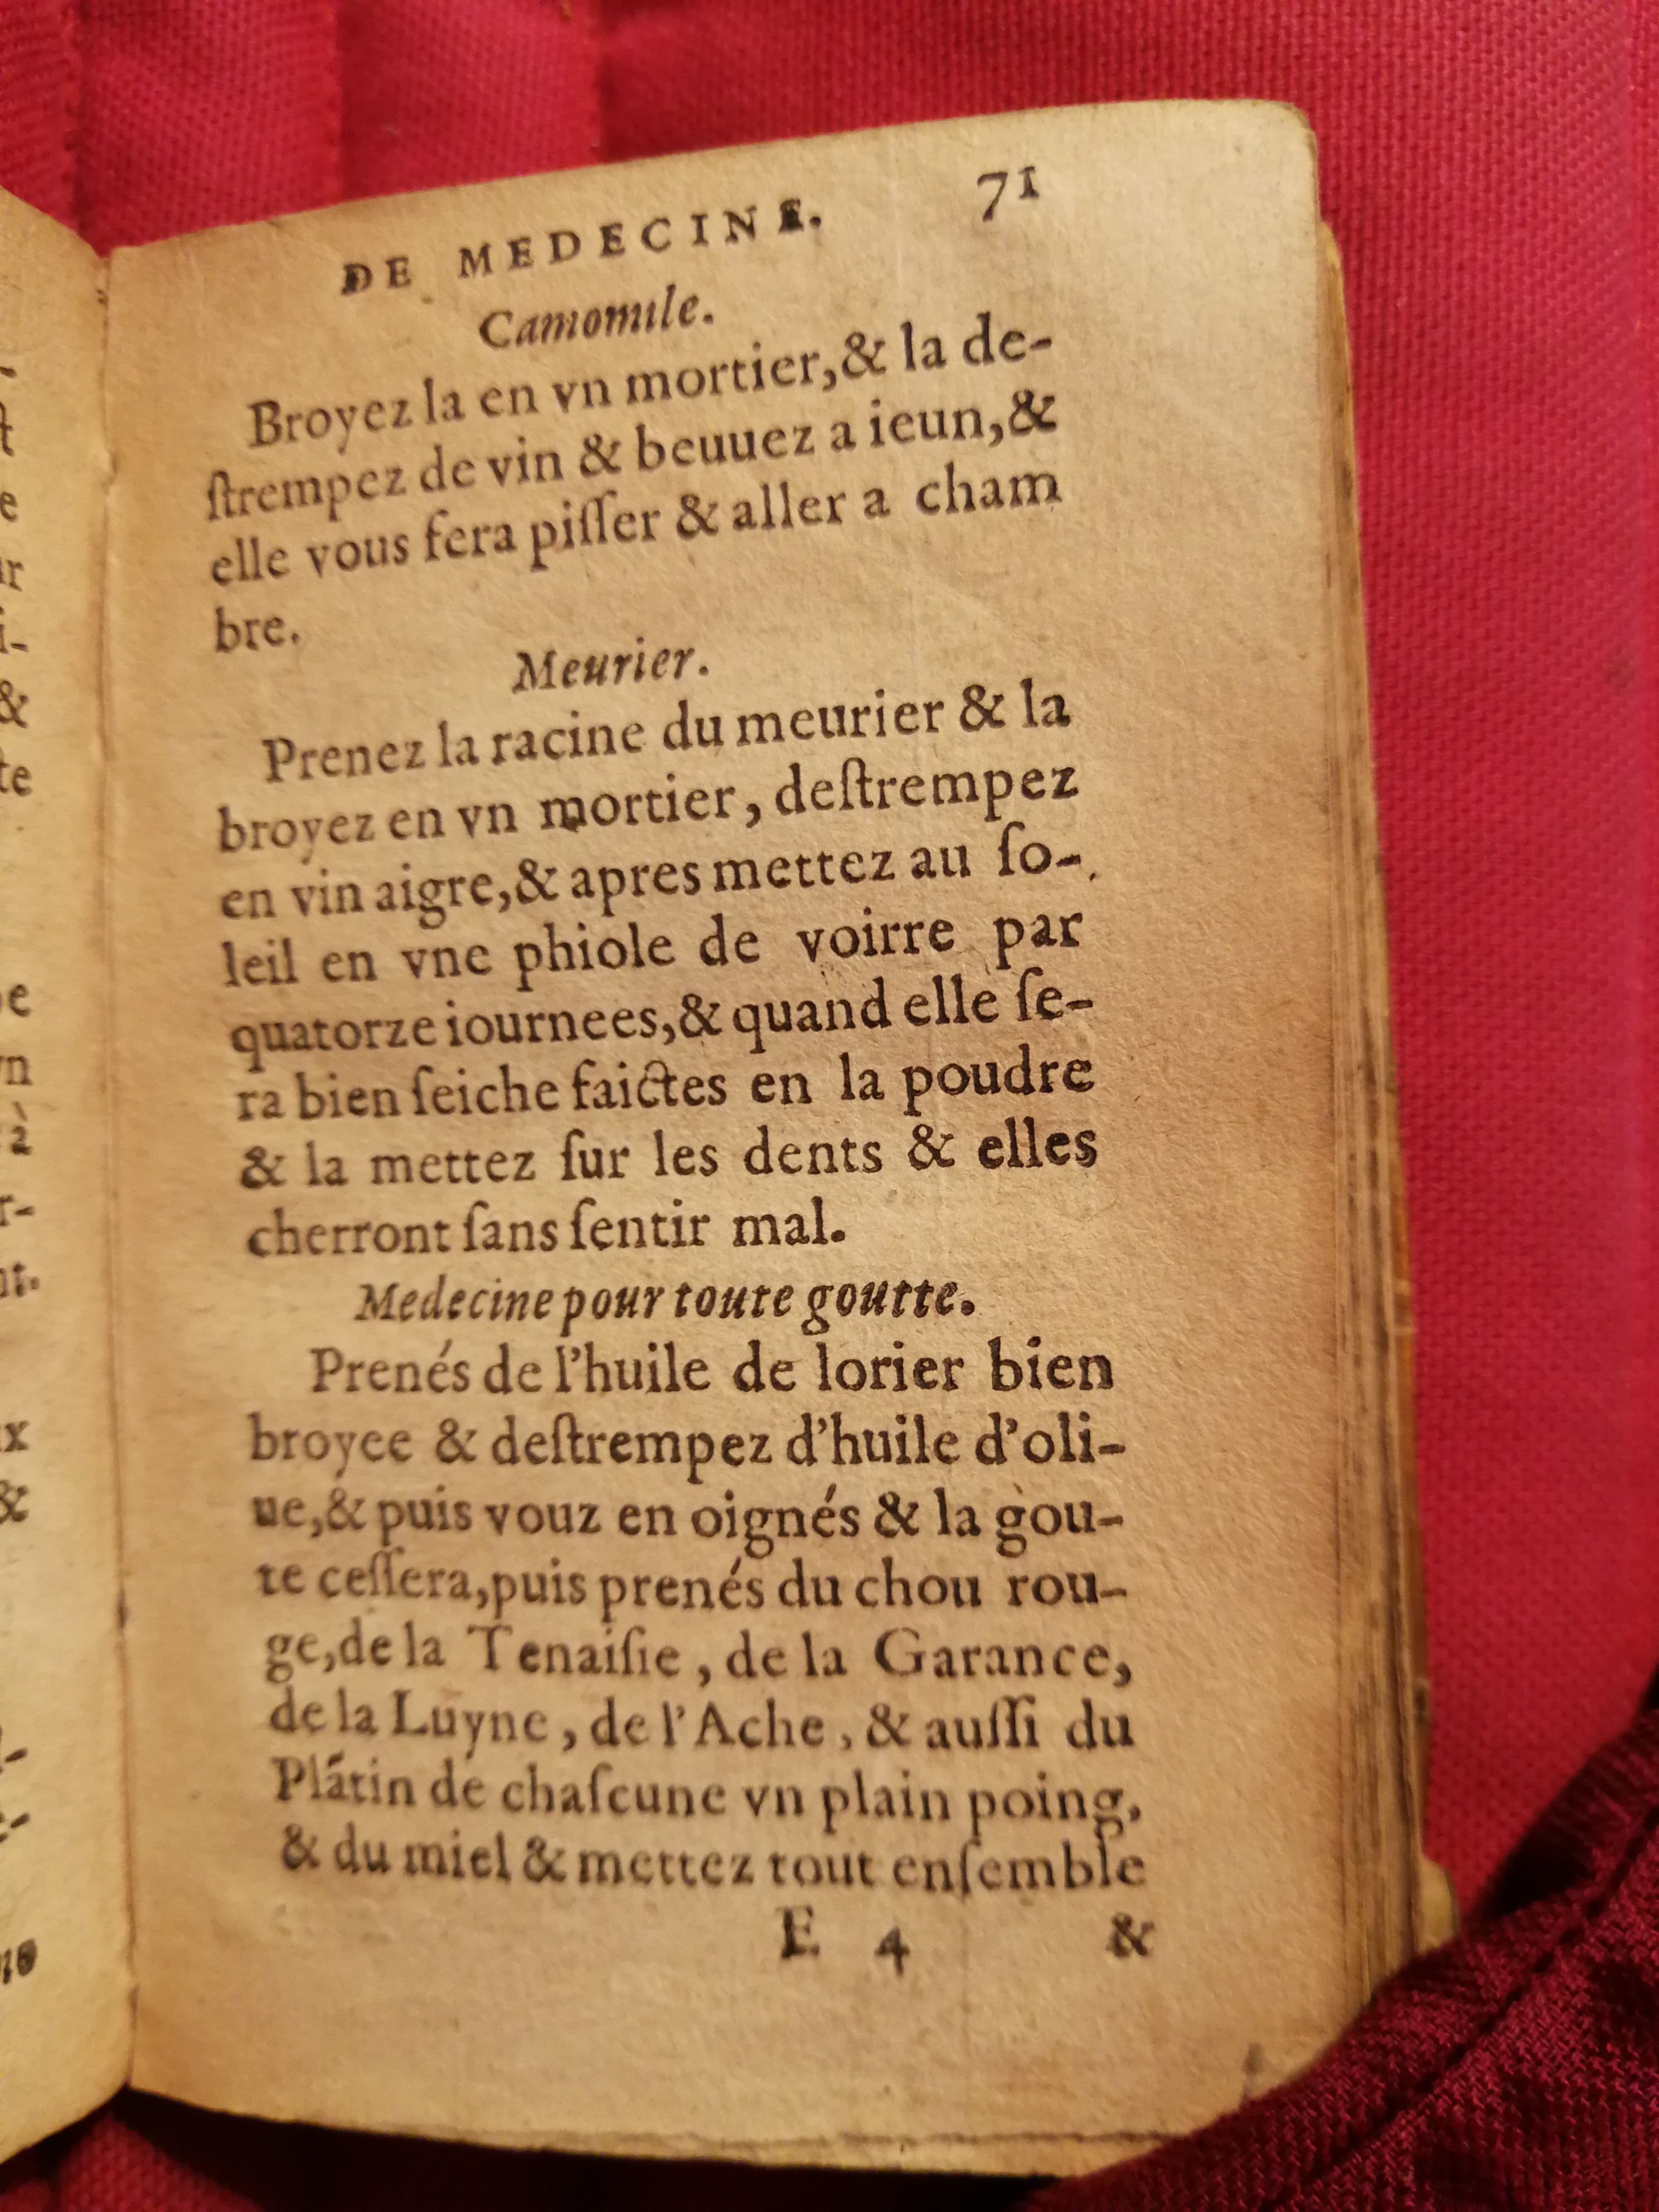 DE MEDECINE. 71
Camomile.
Broyez la en vn mortier,& la de-
ſtrempez de vin & beuuez a ieun,&
elle vous fera piſſer & aller a cham
bre.
Meurier.
Prenez la racine du meurier & la
broyez en vn mortier, deſtrempez
en vin aigre,& apres mettez au ſo-
leil en vne phiole de voirre par
quatorze iournees,& quand elle ſe-
ra bien ſeiche faictes en la poudre
& la mettez ſur les dents & elles
cherront ſans ſentir mal.
Medecine pour toute goutte.
Prenés de l'huile de lorier bien
broyee & deſtrempez d'huile d'oli-
ue,& puis vouz en oignés & la gou-
te ceſſera,puis prenés du chou rou-
ge,de la Tenaiſie, de la Garance,
de la Luyne, de l'Ache, & auſſi du
Plãtin de chaſcune vn plain poing,
& du miel & mettez tout enſemble
E 4 &